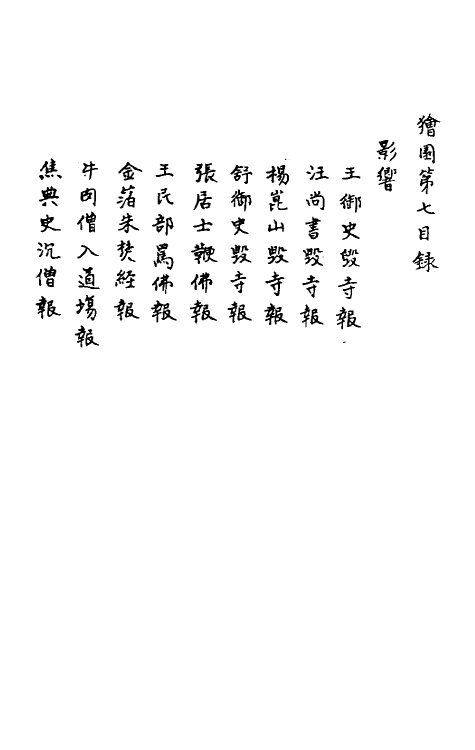 獪園第七目録
影響
王御史毀寺報
汪尚書毀寺報
楊崑山毀寺報
舒御史毀寺報
張居士鞭佛報
王民部罵佛報
金箔朱焚經報
牛肉僧入道塲報
焦典史沉僧報